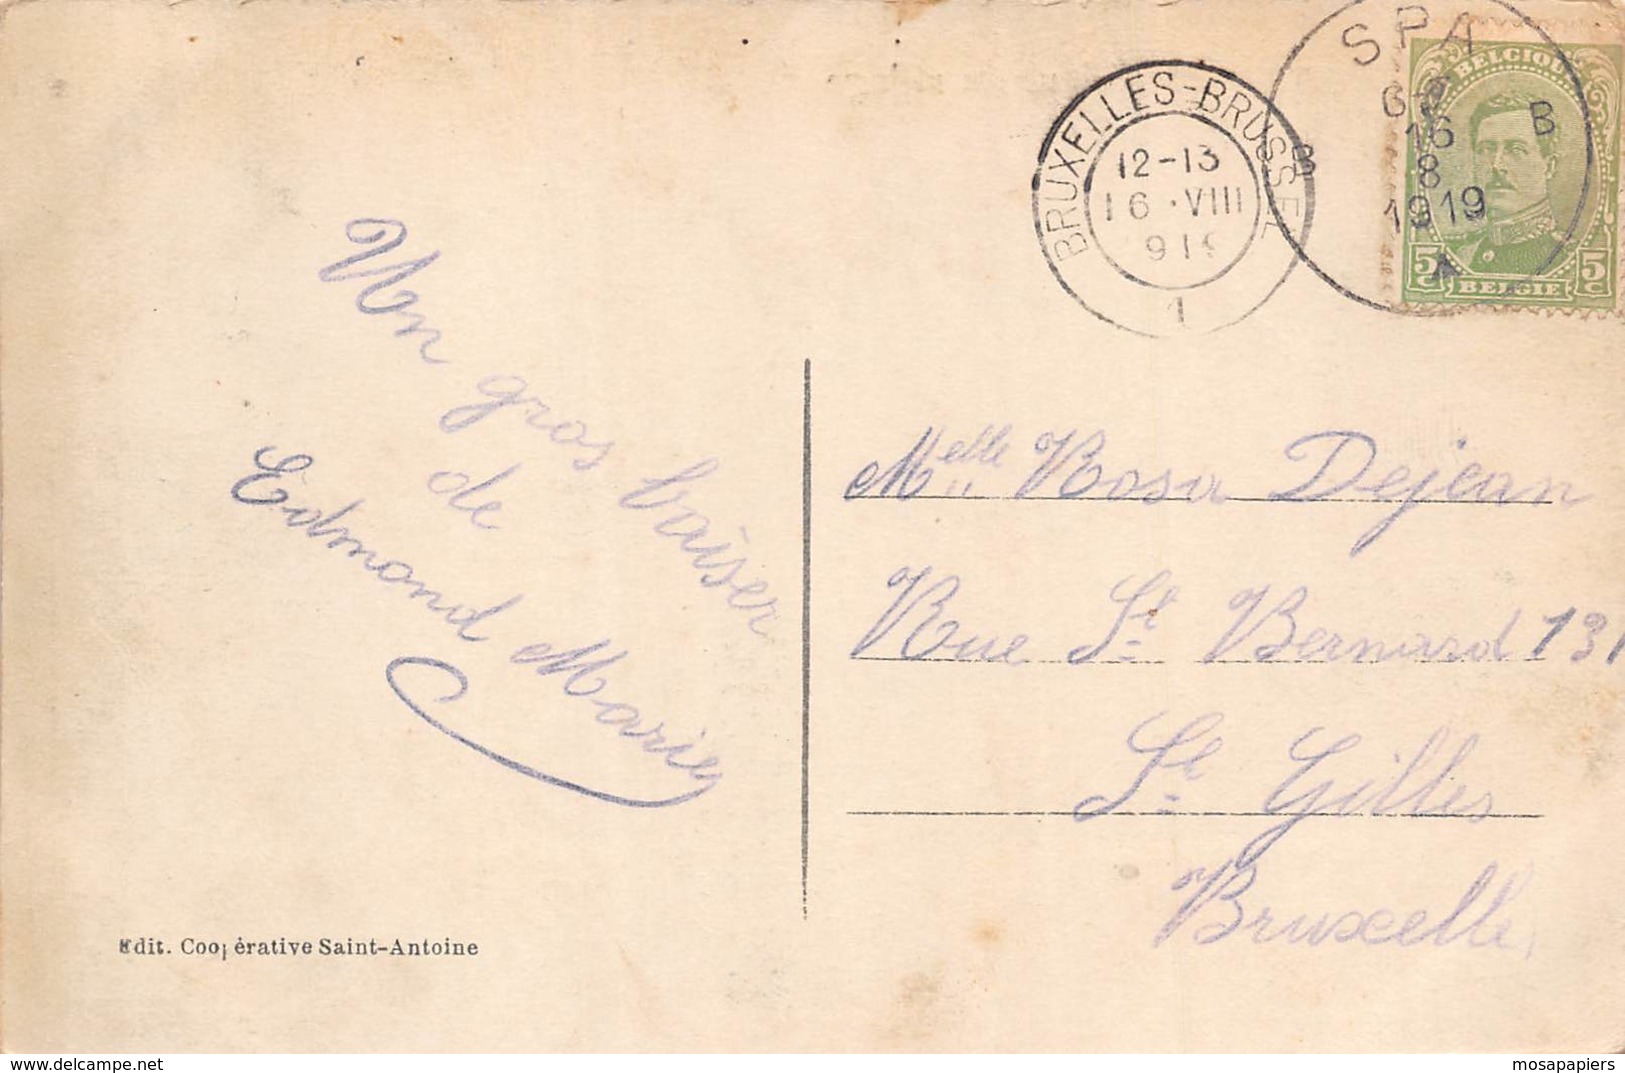 Un gros baiser
de
Edmond Marie
Edit. Coopérative Saint-Antoine
BRUXELLES-BRUSSEL
12-13
16 · VIII
1
SPA
16
8
1919
B
B
BELGIQUE
5c 5c
BELGIE
Melle Rosa Dejean
Rue St Bernard 131
St Gilles
Bruxelles
https://www.delcampe.net
mosapapiers